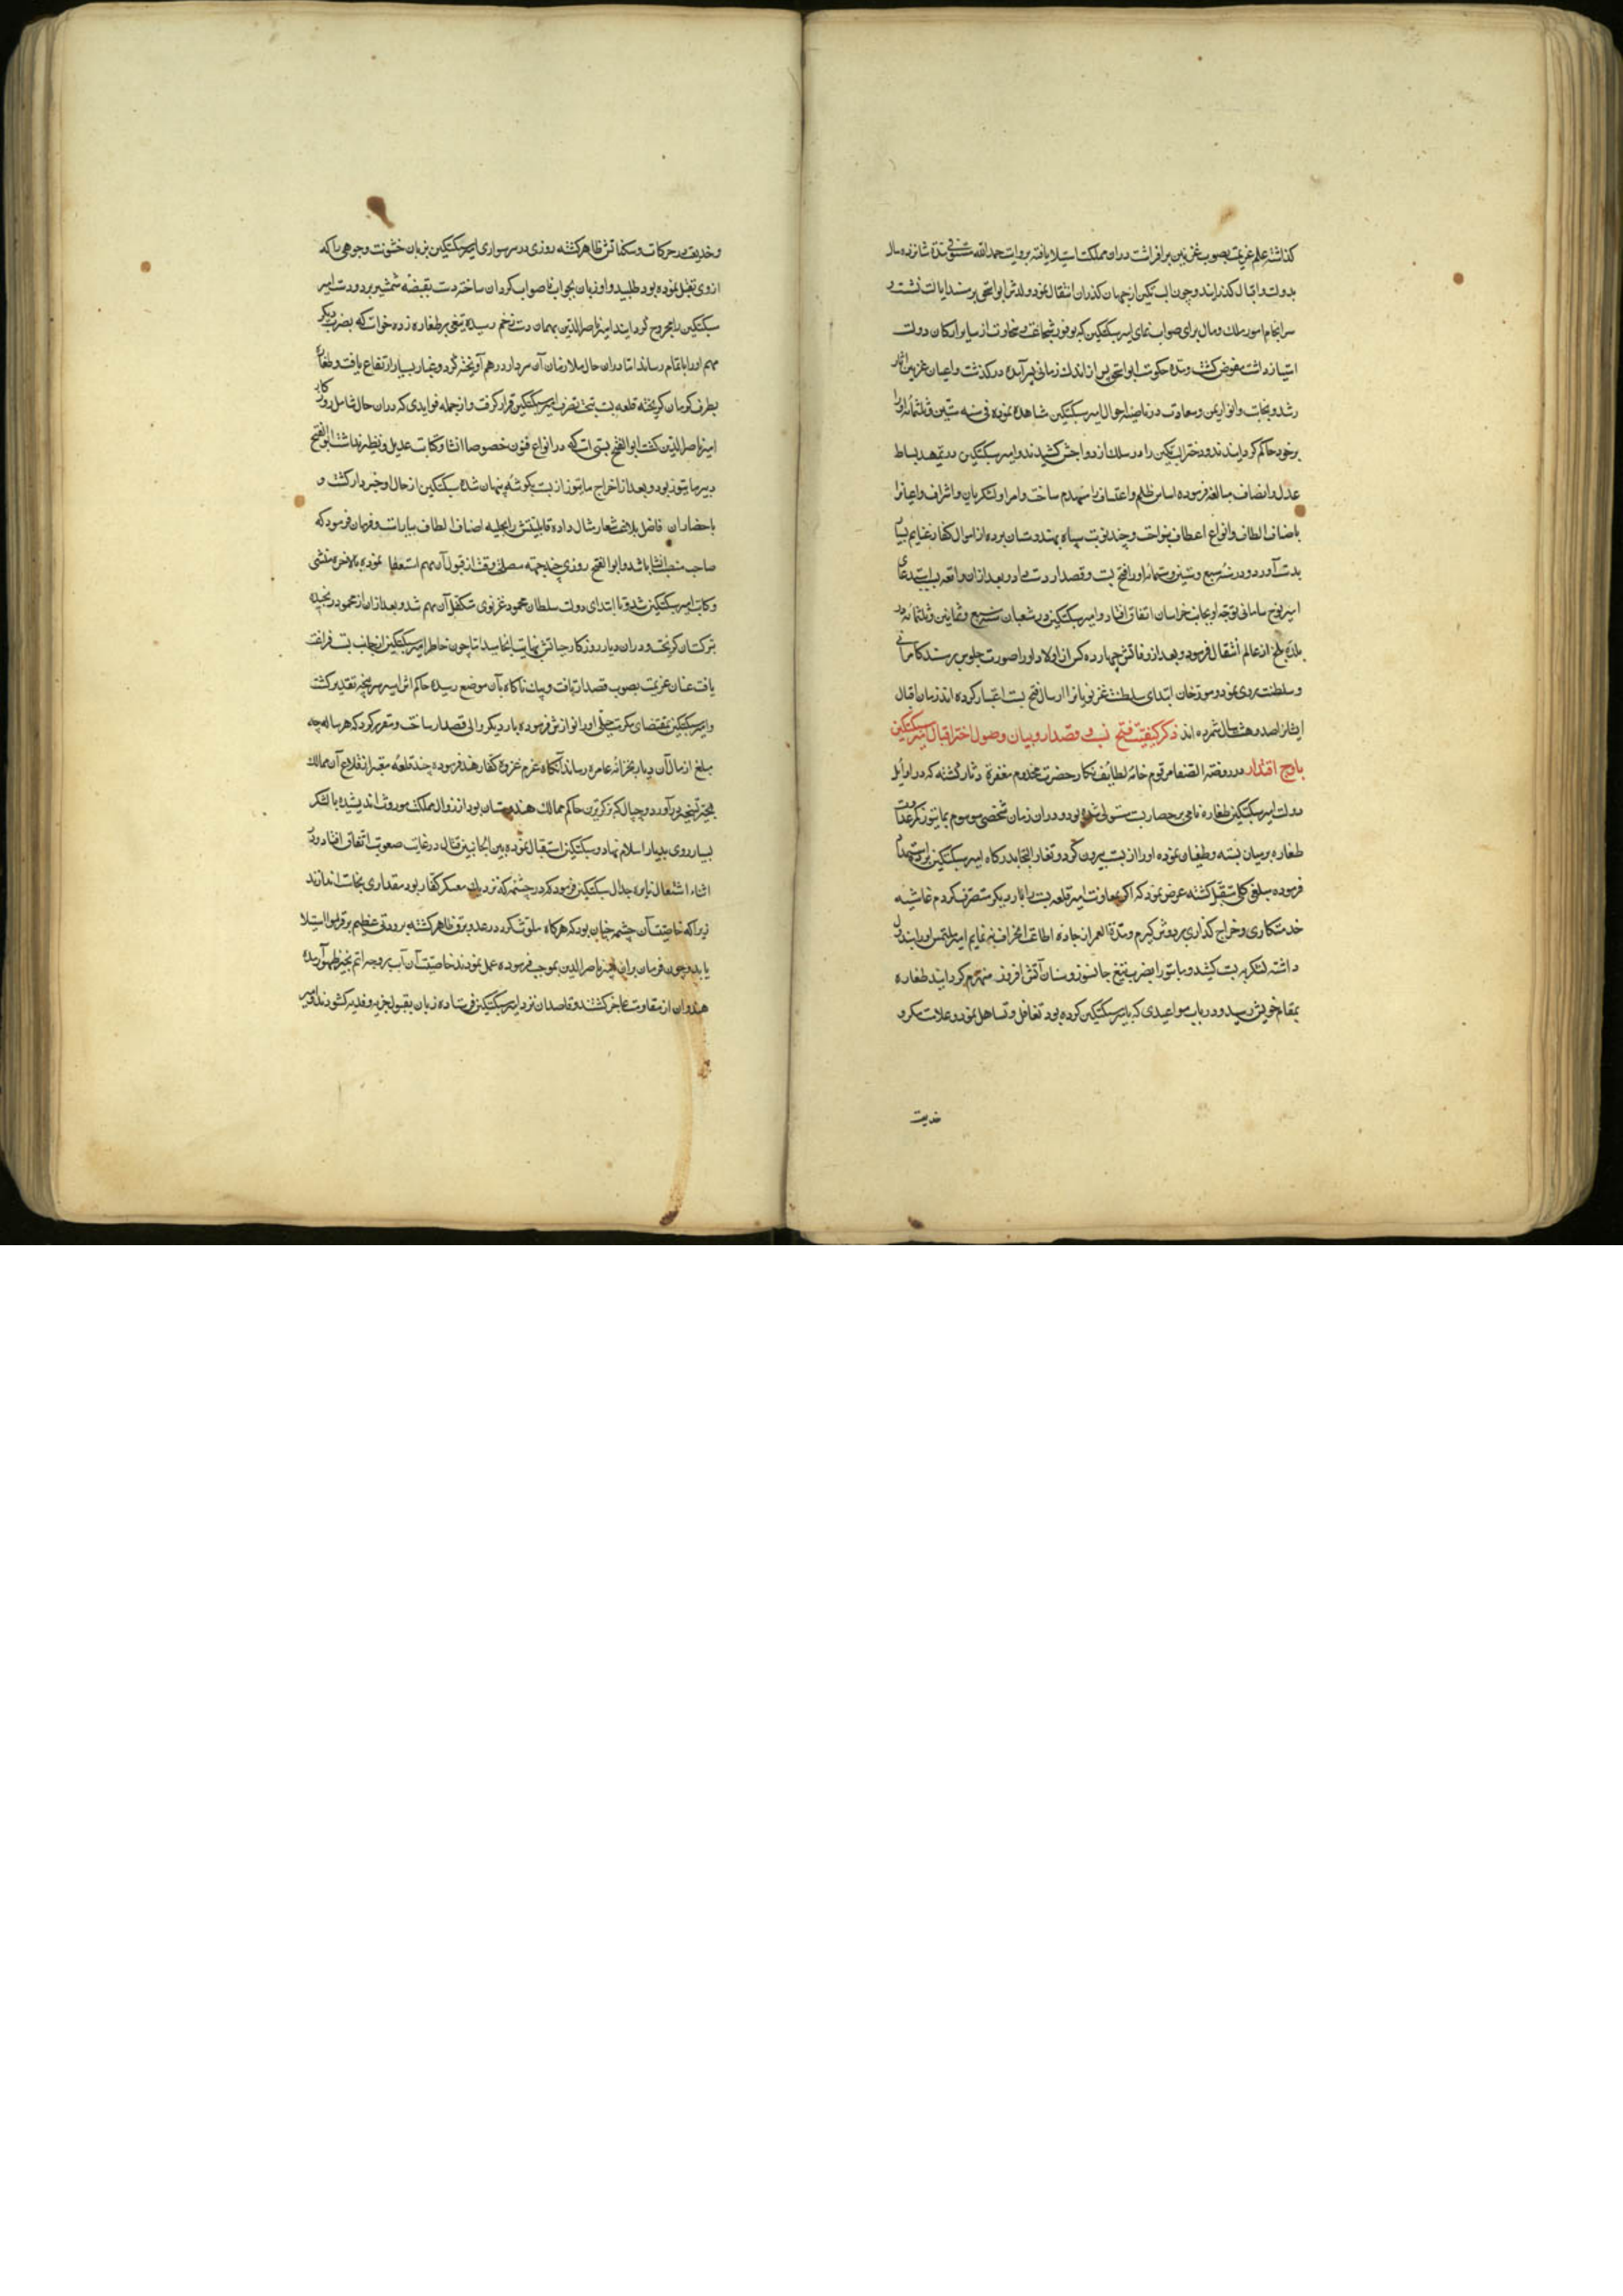 کذاشته علم عزیمت بصوب غزنین برافراشت و دران مملکت استیلا یافته بروایت حمدالله مستوفی مدة شانزده سال
بدولت و اقبال کذرانید و چون البتکین ازجهان کذران انتقال نمود ولدش ابواسحق برمسند ایالت نشست و
سرانجام امور ملک ومال برای صواب نمای امیر سبکتکین که بوفور شجاعت و سخاوت از سایر ارکان دولت
امتیاز داشت مفوض کشت و مدة حکومت ابواسحق پس از اندک زمانی بسر آمده درکذشت واعیان غزنین آثار
رشد و نجابت وانوار یمن و سعادت در ناصیه احوال امیر سبکتکین مشاهده نموده فی سنه ستین و ثلثمائه او را
برخود حاکم کردانیدند و دختر البتکین را در سلک ازدواجش کشیدند و امیر سبکتکین در تمهید بساط
عدل وانصاف مبالغه فرموده اساس ظلم واعتساف را منهدم ساخت وامرا و لشکریان واشراف واعیانرا
باصناف الطاف وانواع اعطاف بنواخت و چند نوبت سپاه بهندوستان برده از اموال کفار غنایم بسیار
بدست آورد و در سنه سبع وستین وثلثمائه او را فتح بست و قصدار دست داد و بعد ازان واقعه باستدعای
امیر نوح سامانی توجه او بجانب خراسان اتفاق افتاد و امیر سبکتکین در شعبان سنه سبع و ثمانین و ثلثمائه در
بلده بلخ از عالم انتقال فرمود و بعد از وفاتش چهارده کس از اولاد او را صورت جلوس برمسند کامرانی
و سلطنت روی نمود و مورخان ابتدای سلطنت غزنویانرا از سال فتح بست اعتبار کرده اند زمان اقبال
ایشانرا صد و هشت سال شمرده اند ذکر کیفیت فتح بست و قصدار و بیان وصول اختر اقبال امیر سبکتکین
باوج اقتدار در روضة الصفا مرقوم خامه لطایف نکار حضرت مخدوم مغفرة دثار کشته که در اوایل
دولت امیر سبکتکین طغان نامی برحصار بست مستولی شده بود و دران زمان شخصی موسوم ببایتوز کمر عداوت
طغان برمیان بسته و طغیان نموده او را از بست بیرون کرد و طغان التجا بدرکاه امیر سبکتکین برده استمداد
فرموده مبلغی کلی متقبل کشته عرض نمود که اکر بمعاونت امیر قلعه بست را بار دیکر متصرف کردم غاشیه
خدمتکاری و خراج کذاری بردوش کیرم و مدة العمر از جاده اطاعت انحراف ننمایم امیر ملتمس او را مبذول
داشته لشکر به بست کشید و بایتوز را بضرب تیغ جانسوز وسنان آتش افروز منهزم کردانید طغان
بمقام خویش رسید و در باب مواعیدی که با امیر سبکتکین کرده بود تغافل و تساهل نمود و علامت مکر و
خدیعت
و خدیعت در حرکات و سکناتش ظاهر کشته روزی در سر سواری امیر سبکتکین بزبان خشونت وجوهی را که
ازوی تقبل نموده بود طلبید و او زبان بجواب ناصواب کردان ساخته دست بقبضه شمشیر برد و دست امیر
سبکتکین را مجروح کردانید امیر ناصرالدین بهمان دست زخم رسیده تیغی بر طغان زده خواست که بضرب دیکر
مهم او را باتمام رساند اما دران حال ملازمان آن سردار درهم آویخته کرد و غبار بسیار ارتفاع یافت و طغان
بطرف کرمان کریخته قلعه بست بتحت تصرف امیر سبکتکین قرار کرفت و از جمله فوایدی که دران حال شامل روزکار
امیر ناصرالدین کشت ابوالفتح بستی است که در انواع فنون خصوصا انشا و کتابت عدیل و نظیر نداشت ابوالفتح
دبیر بایتوز بود و بعد از اخراج بایتوز از بست بکوشه پنهان شده سبکتکین از حال او خبردار کشت و
باحضار آن فاضل بلاغت شعار مثال داده قابلیتش را بحلیه اصناف الطاف بیاراست و فرمان فرمود که
صاحب منصب انشا باشد و ابوالفتح روزی چند جهته مصلحت وقت از قبول آن مهم استعفا نموده بالاخره منشی
و کاتب امیر سبکتکین شد و تا ابتدای دولت سلطان محمود غزنوی متکفل آن مهم شد و بعد ازان از محمود رنجیده
بترکستان کریخت و دران دیار روزکار حیاتش بنهایت انجامید اما چون خاطر امیر سبکتکین از جانب بست فراغت
یافت عنان عزیمت بصوب قصدار تافت و بیک ناکاه بآن موضع رسیده حاکم آن اسیر سرپنجه تقدیر کشت
و امیر سبکتکین بمقتضای مکرمت جبلی او را نوازش فرموده بار دیکر والی قصدار ساخت و مقرر کرد که هرساله چه
مبلغ از مال آن دیار بخزانه عامره رساند آنکاه عزم غزوه کفار هند فرموده چند قلعه معتبر از قلاع آن ممالک
بحیز تسخیر درآورد و چیپال که بزرکترین حاکم ممالک هندوستان بود از زوال مملکت موروث اندیشیده با لشکر
بسیار روی بدیار اسلام نهاد و سبکتکین استقبال نموده بین الجانبین قتال در غایت صعوبت اتفاق افتاد و در
اثناء اشتعال نایره جدال سبکتکین فرمود که در چشمه که نزدیک معسکر کفار بود مقداری نجاست اندازند
زیرا که خاصیت آن چشمه چنان بود که هرکاه ملوث کردد رعد و برق ظاهر کشته برودتی عظیم بر قلوب استیلا
یابد و چون فرمان بران امیر ناصرالدین بموجب فرموده عمل نمودند خاصیت آن آب بر وجه اتم بحیز ظهور آمده
هندوان از مقاومت عاجز کشتند و قاصدان نزد امیر سبکتکین فرستاده زبان بقبول جزیه و فدیه کشودند امیر